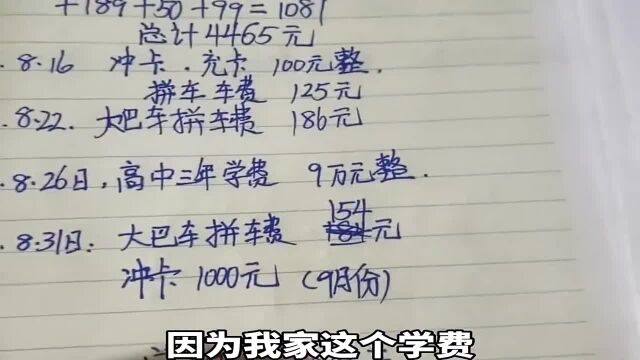 +189+50+99=1081
总计4465元
.8.16 冲卡.充卡 100元整.
拼车车费 125元
.8.22. 大巴车拼车费 186元
.8.26日,高中三年学费 9万元整.
154
.8.31日: 大巴车拼车费 184元
冲卡 1000元 (9月份)
因为我家这个学费